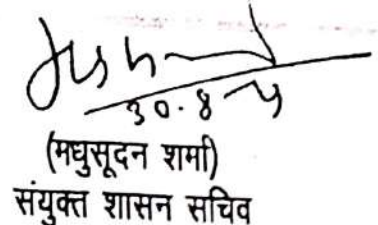 30.8
(मधुसूदन शर्मा)
संयुक्त शासन सचिव